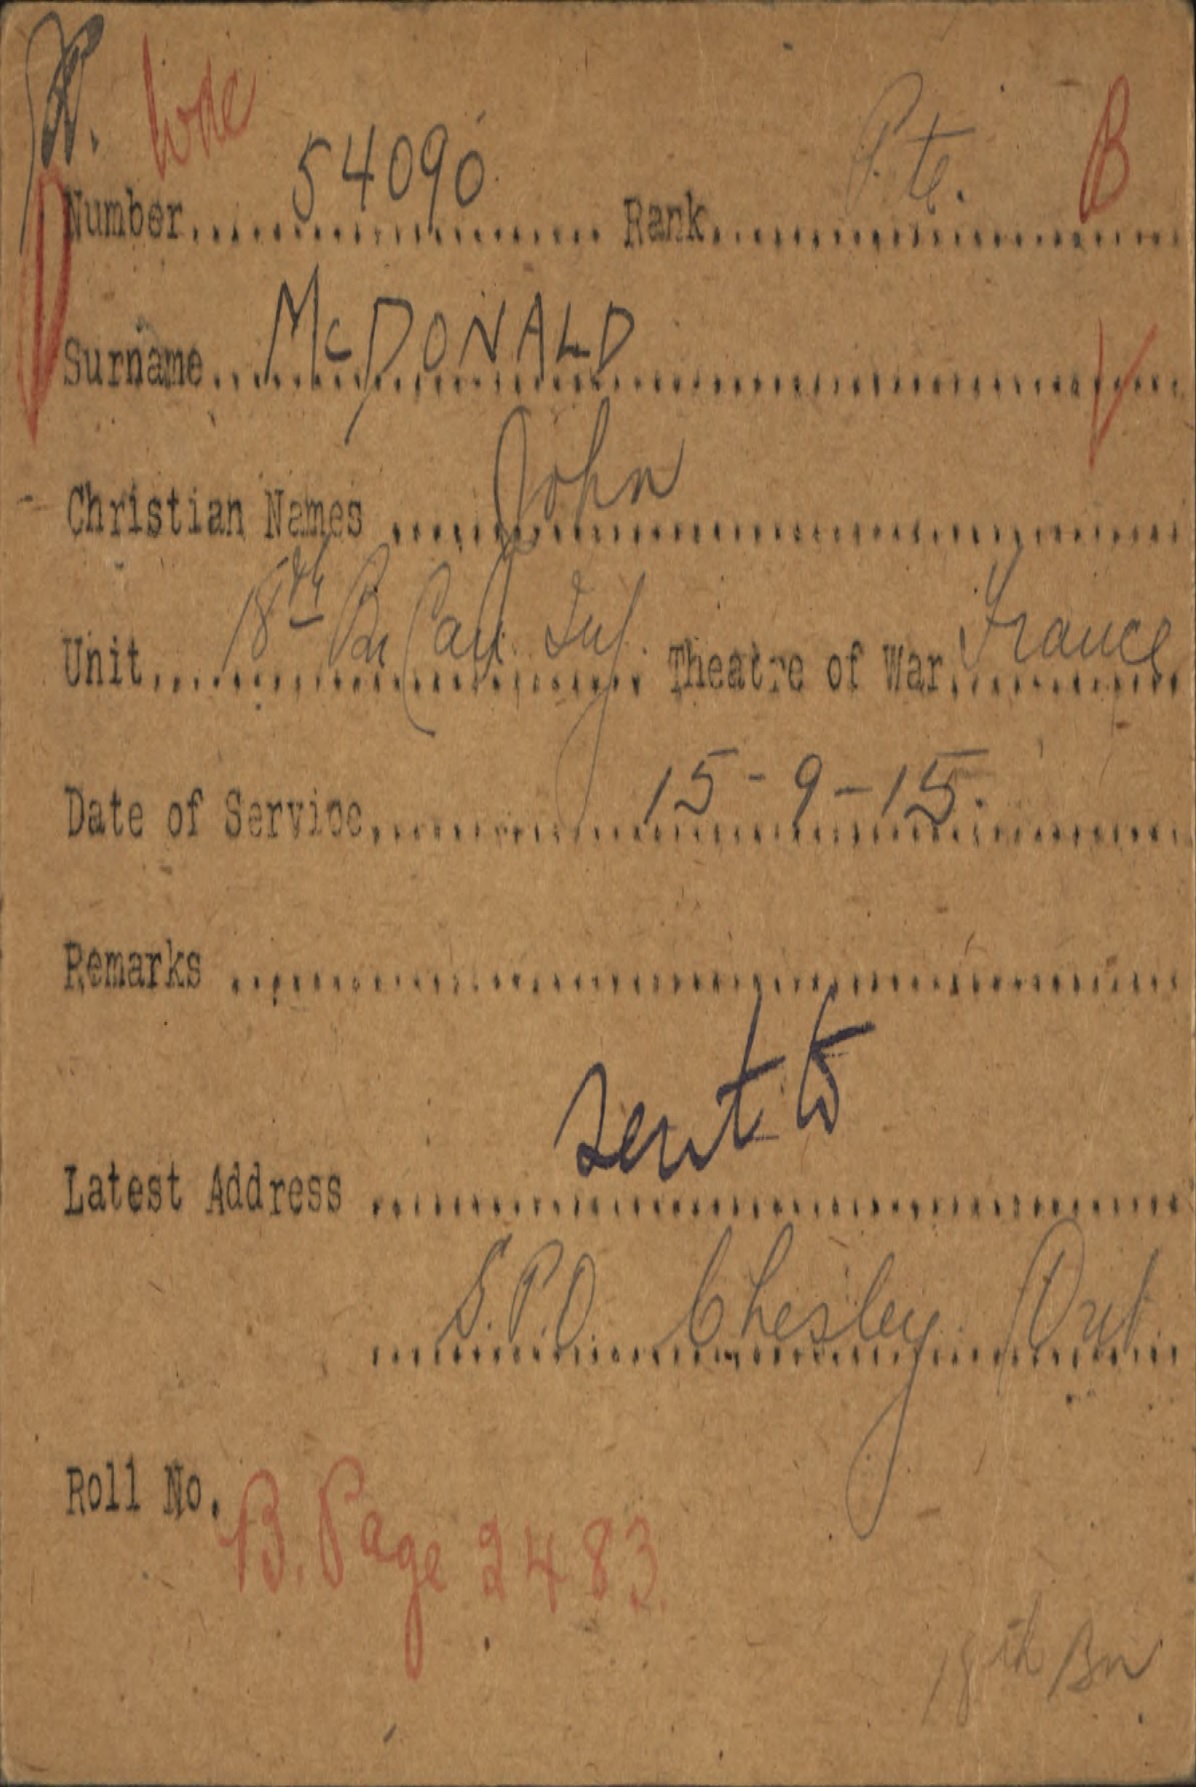 Number 54090 Rank Pte. B
Surname McDONALD
Christian Names John
Unit 18th Bn Can. Inf. Theatre of War France
Date of Service 15-9-15.
Remarks
sent to
Latest Address
S.P.O. Chesley Ont.
Roll No. B. Page 2483.
18th Bn